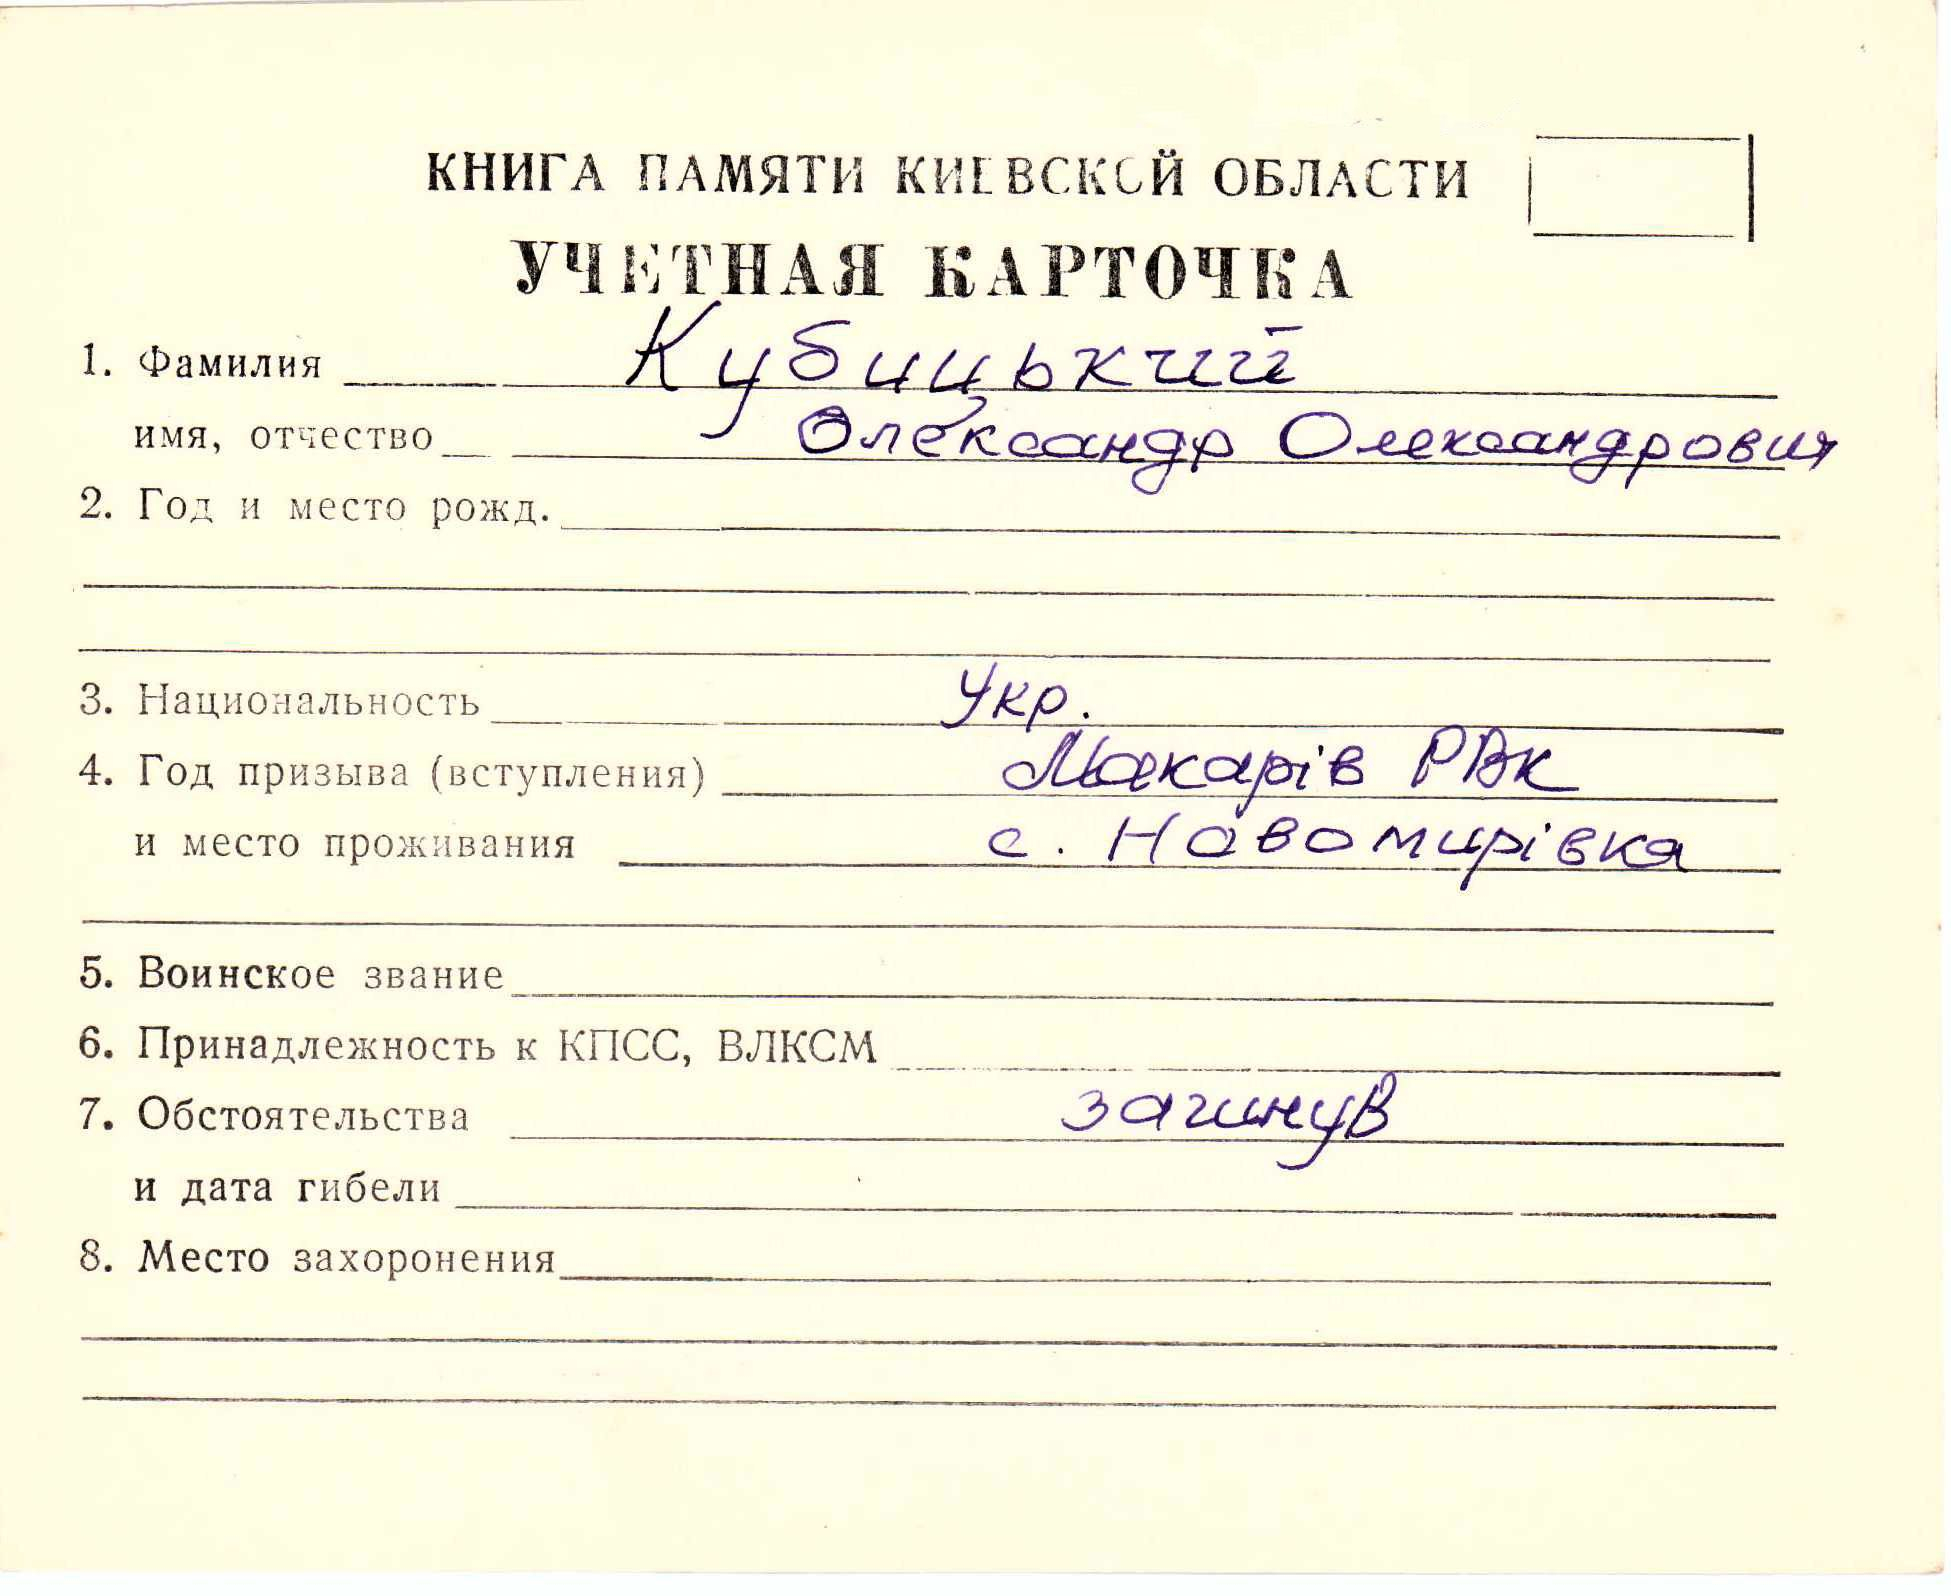 КНИГА ПАМЯТИ КИЕВСКОЙ ОБЛАСТИ
УЧЕТНАЯ КАРТОЧКА
1. Фамилия Кубицький
имя, отчество Олександр Олександрович
2. Год и место рожд.
3. Национальность Укр.
4. Год призыва (вступления) Макарів РВК
и место проживания с. Новомирівка
5. Воинское звание
6. Принадлежность к КПСС, ВЛКСМ
7. Обстоятельства загинув
и дата гибели
8. Место захоронения